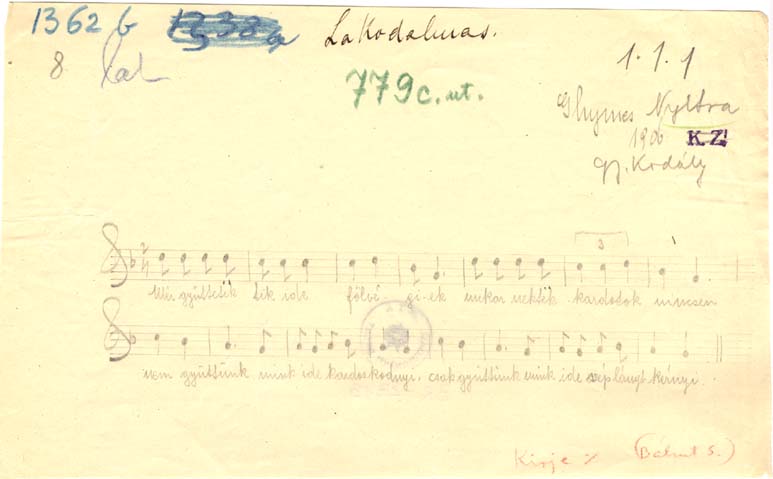 1362 b 1338a Lakodalmas.
8 lat
779c. ut.
1.1.1
Ghymes Nyitra
1906 K.Z!
gy. Kodály
3
gyüttetëk tëk ide fölvé gi ek mikor nektëk kardotok nincsen
nem gyüttünk mink ide kardoskodnyi, csak gyüttünk mink ide szép lányt kérnyi.
Kirje % (Bálint S.)